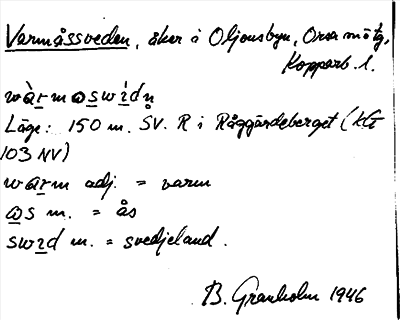 Varmåssveden, åker i Oljonsbyn, Orsa
Kopparb. l.
Läge: 150 m. SV. R i Råggärdeberget (kG
103 NV)
warm adj. = varm
ås m. = ås
swid m. = svedjeland.
B. Granholm 1946